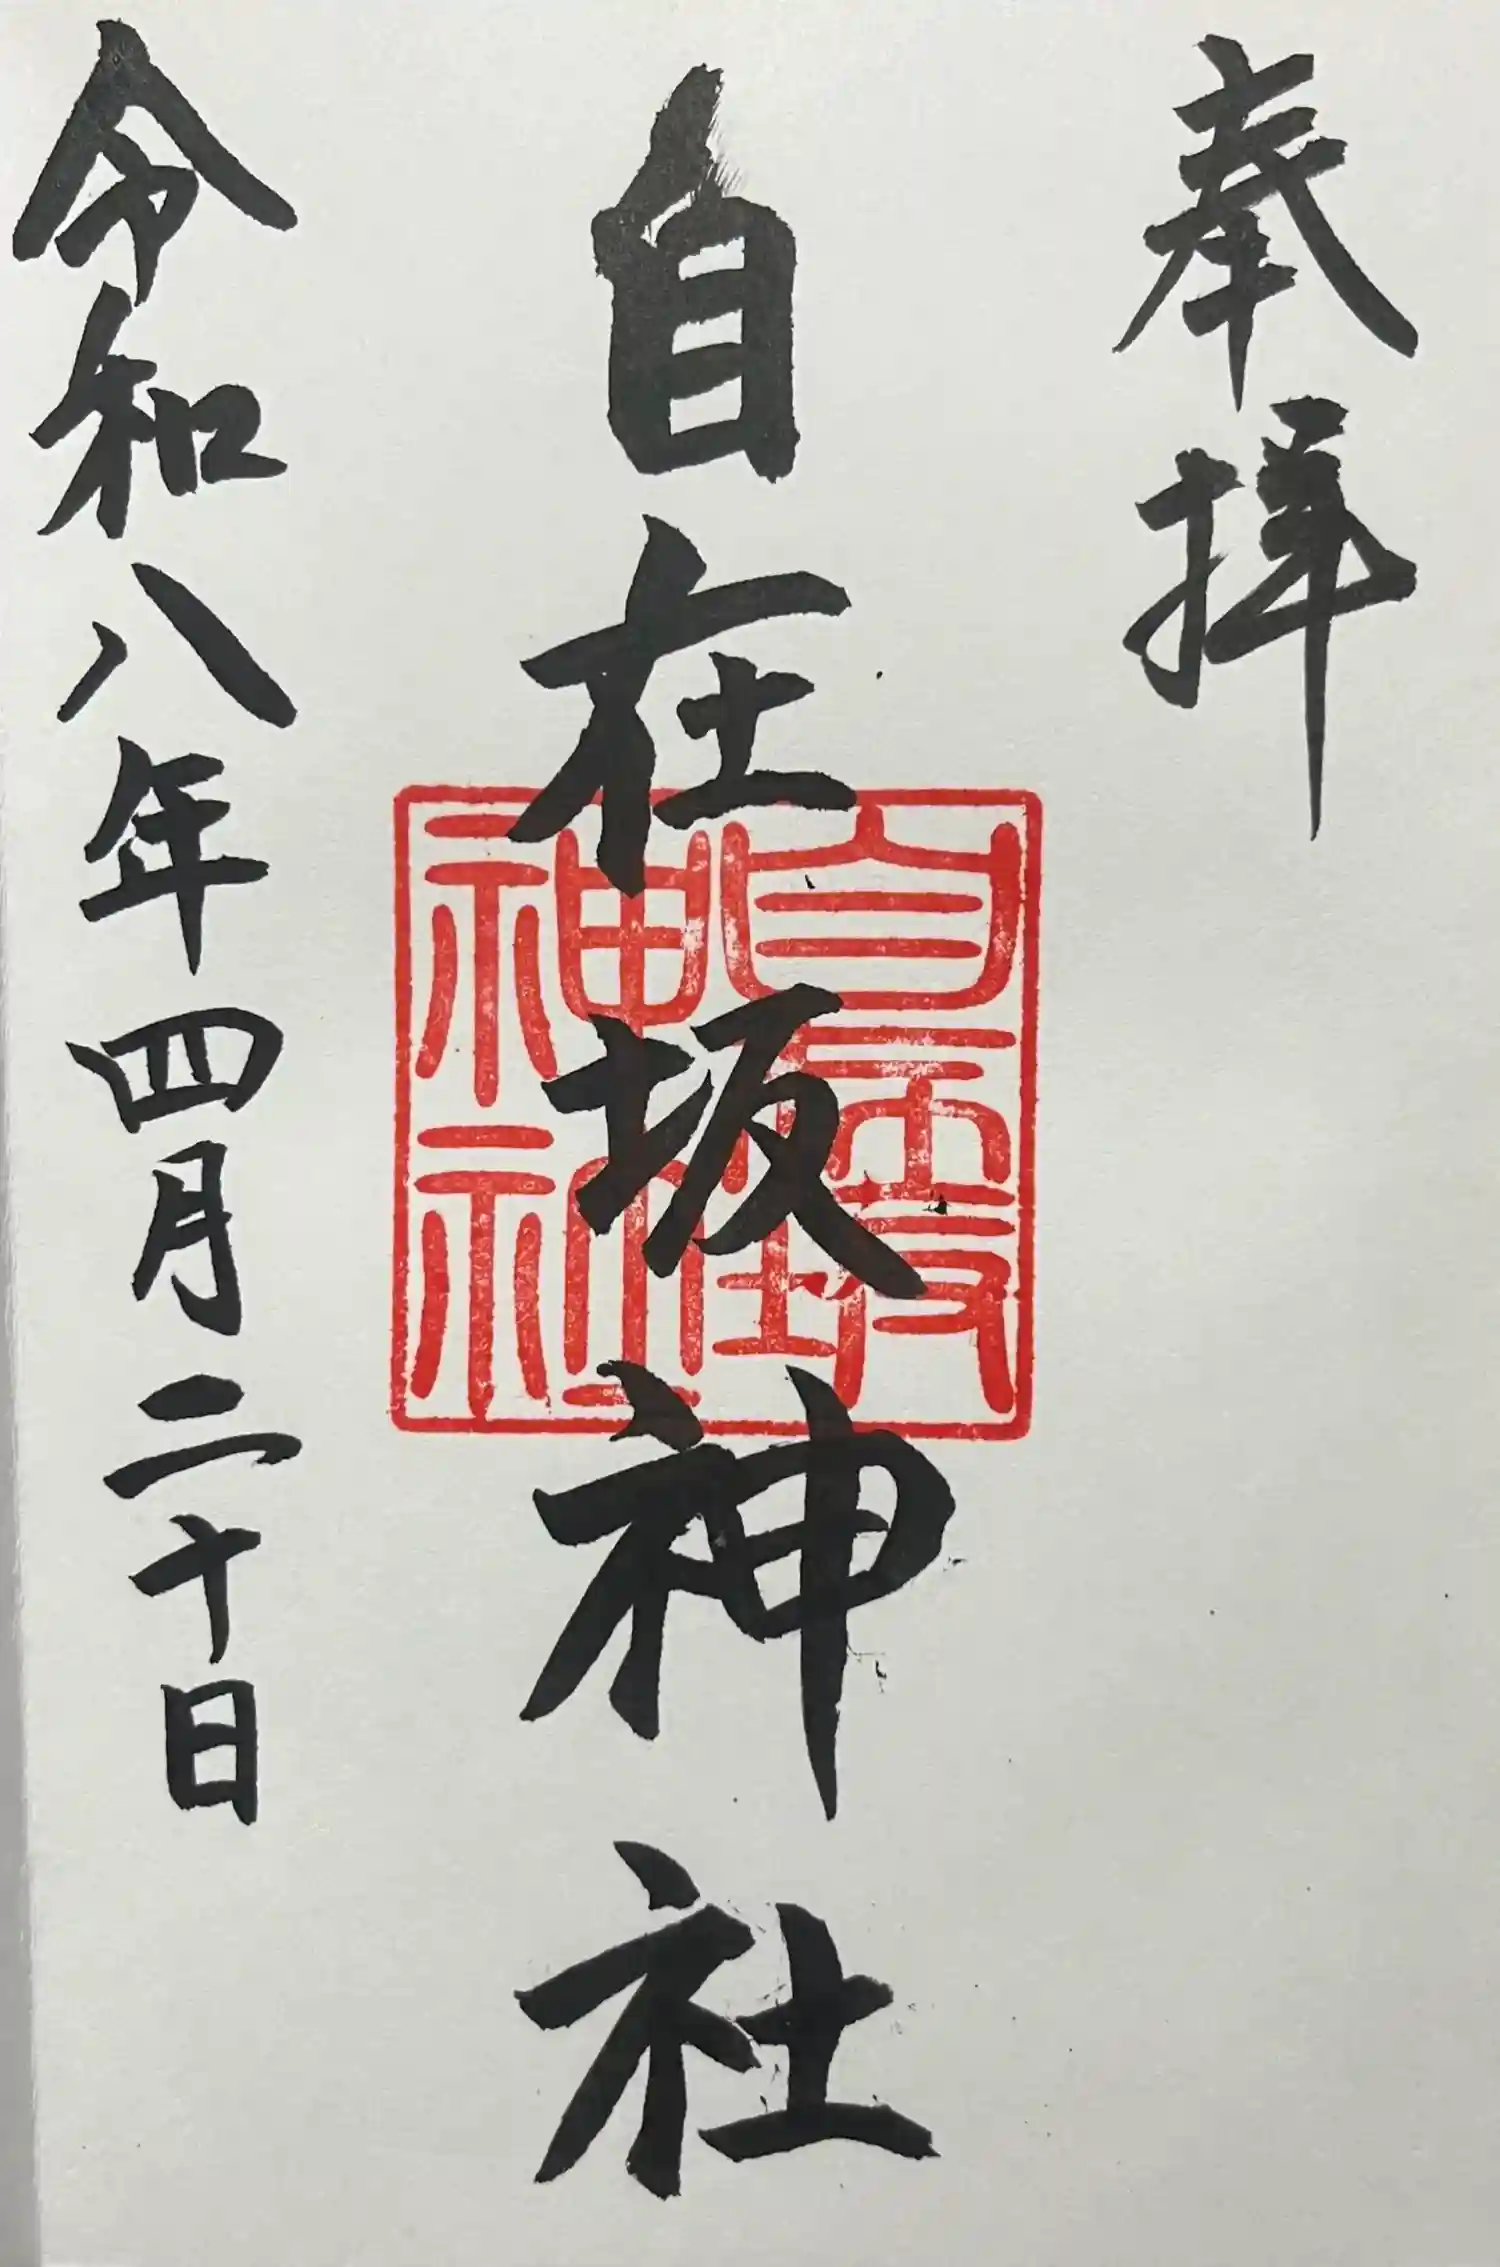 奉拝
自在坂神社
令和八年四月二十日
自在坂
神社